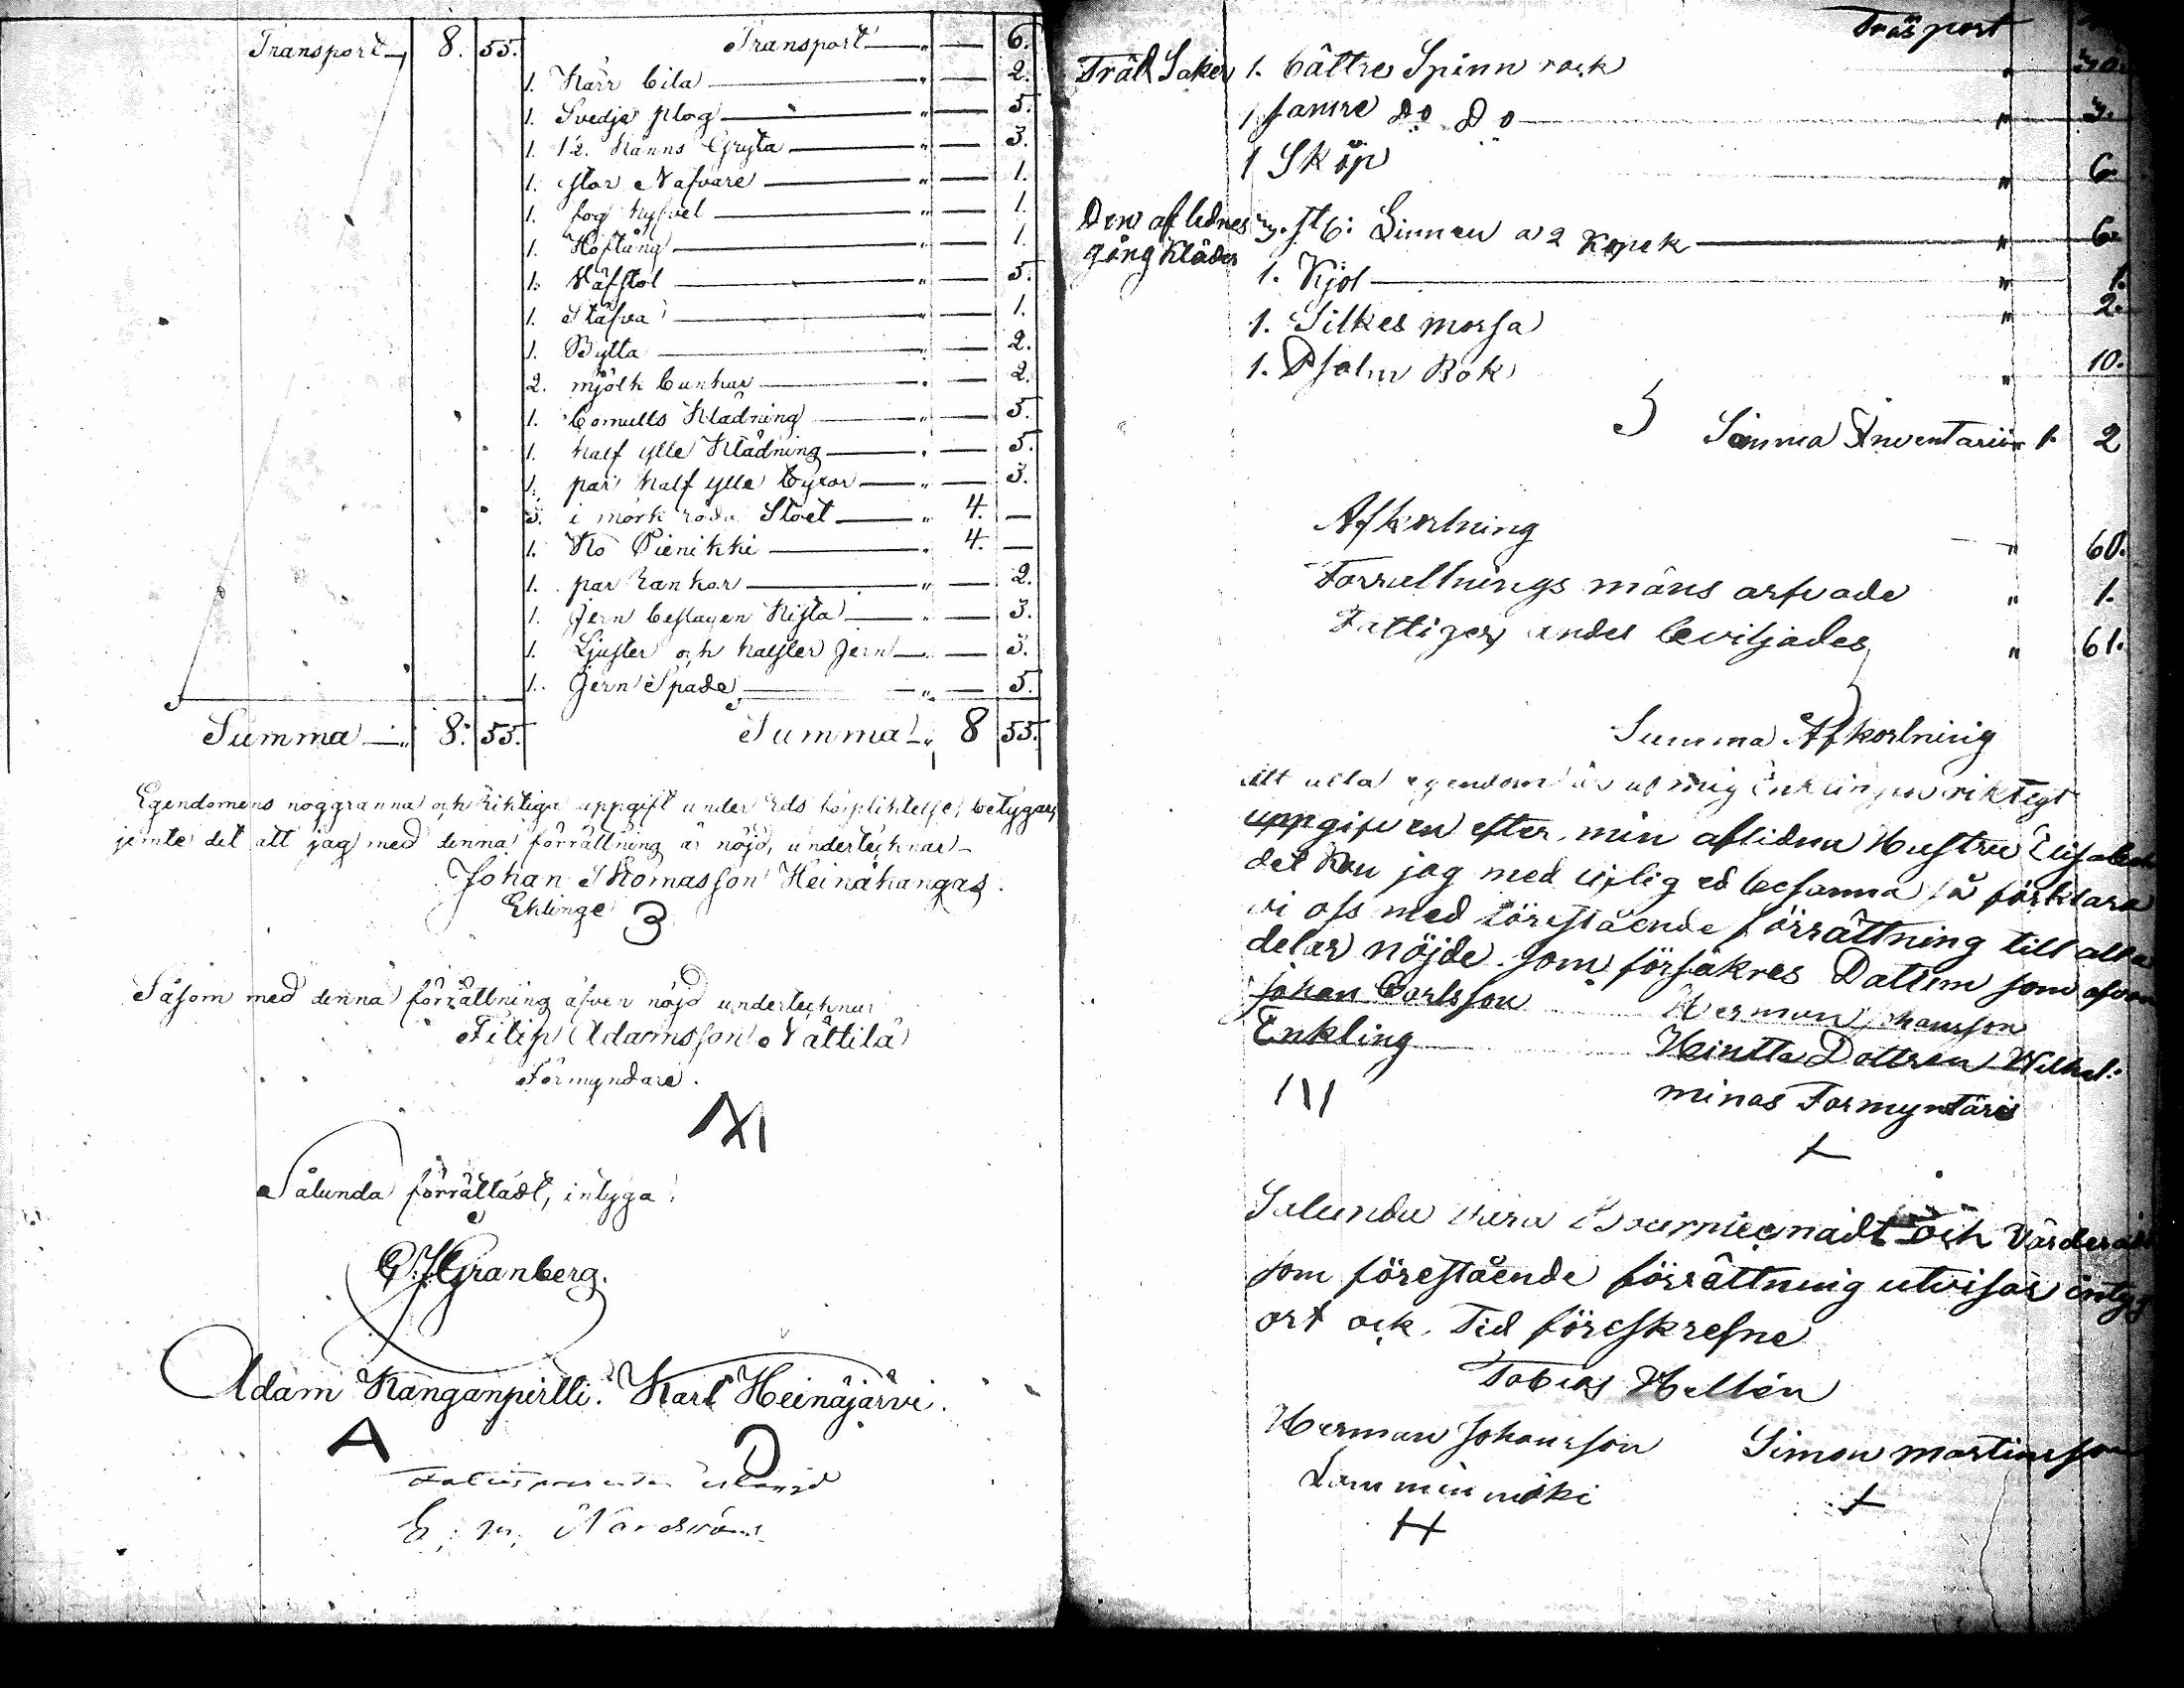 Transport 8. 55. Transport " — 6.
1. Kärr bila " — 2.
1. Svedje plog " — 5.
1. 12. Kanns Gryta " — 3.
1. stor Nafvare " — 1.
1. fog hyfvel " — 1.
1. Hoftång " — 1.
1. Väfstol " — 5.
1. Stäfva " — 1.
1. Bytta " — 2.
2. mjölk bunkar " — 2.
1. bomulls Klädning " — 5.
1. half ylle Klädning " — 5.
1. par half ylle byxor " — 3.
3. i mörk röda Stoet " 4. —
1. Ko Pienikki " 4. —
1. par Rankor " — 2.
1. Jern beslagen Kista " — 3.
1. Ljuster och halster Jern " — 3.
1. Jern Spade " — 5.
Summa " 8. 55. Summa " 8 55.
Egendomens noggranna och riktiga uppgift under Eds förpliktelse, betygar
jemte det att jag med denna förrättning är nöjd, undertecknar
Johan Thomasson Heinäkangas.
Enklinge
3
Såsom med denna förrättning äfven nöjd undertecknar
Filip Adamsson Nättilä
Förmyndare.
Sålunda förrättadt, intyga:
G. Granberg.
Adam Kanganpirtti. Karl Heinäjärvi.
A D
E. m.
Tränsport
Träd Saker 1. bättre Spinn rock " 30.
1 samre Do Do " 3.
1 Skåp " 6.
Den aflednes 3. st: Linnen a 2 kopek " 6.
gång Kläder 1. Kjol " 1.
1. Silkes mossa " 2.
1. Psalm Bok " 10.
Summa Inventariin 1. 2
Afkortning " 60.
Förrettnings mäns arfvade " 1.
Fattiges andel beviljades " 61.
Summa Afkortning
Att alla egendom är af mig Enklingen riktigt
uppgifven efter min aflidna Hustru Elisabeth
det kan jag med liflig ed besanna så förklara
vi oss med förestående förrättning till alla
delar nöjde som försäkres Dattum som ofvan
Johan Carlsson Herman Johansson
Enkling Heintta Dottren Wilhel:
minas Formyntäris
Salunda vara Bouptecknadt och Värderadt
som förestående förrättning utvisar intyg
ort ock Tid föreskrefne
Tobias Hellén
Herman Johansson Simon Martinsson
Lamminmäki